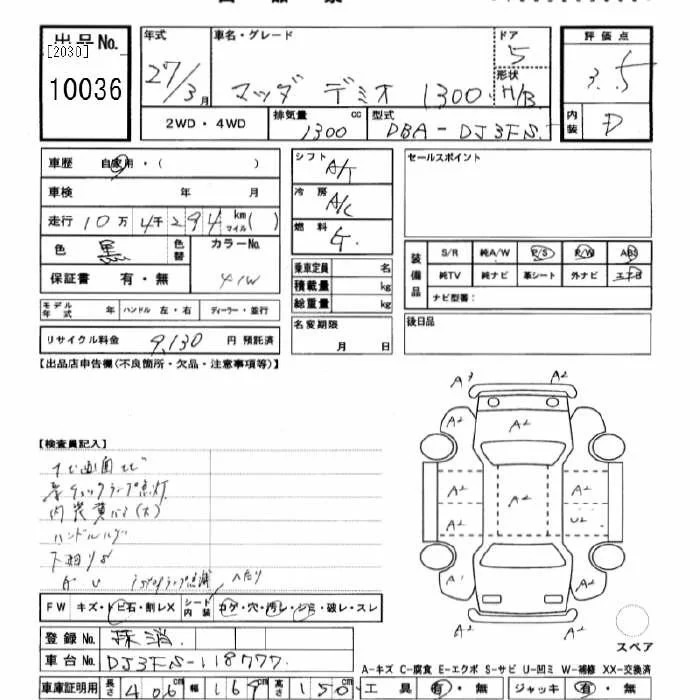 出品No.
[2030]
10036
年式
27/3月
車名・グレード
マツダ デミオ 1300
ドア
5
形状
H/B
2WD・4WD
排気量 cc
1300
型式
DBA-DJ3FS
評価点
3.5
内装
D
車歴 自家用・( )
車検 年 月
走行 10万 4千 294 km マイル( )
色 黒 色替
カラーNo.
41W
保証書 有・無
モデル年式 年 ハンドル 左・右 ディーラー・並行
リサイクル料金 9,130 円 預託済
シフト
A/T
冷房
A/C
燃料
G.
乗車定員 名
積載量 kg
総重量 kg
名変期限
月 日
セールスポイント
装備品
S/R 純A/W P/S P/W ABS
純TV 純ナビ 革シート 外ナビ エアB
ナビ型番:
後日品
【出品店申告欄(不良箇所・欠品・注意事項等)】
【検査員記入】
ハンドル
下廻りS
FW キズ・トビ石・割レX シート内装 コゲ・穴・汚レ・シミ・破レ・スレ
登録No. 抹消.
車台No. DJ3FS-118777.
車庫証明用 長さ 406cm 幅 169cm 高さ 150cm
A3 A2
A2 A2 A2
A2 A2 A2
A2 U2
A1 A2
A2
スペア
A-キズ C-腐食 E-エクボ S-サビ U-凹ミ W-補修 XX-交換済
工具 有・無 ジャッキ 有・無